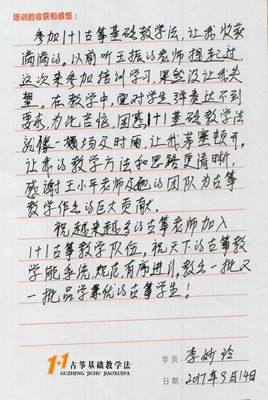 培训的收获和感想：
参加1+1古筝基础教学法，让我收获
满满的。以前听王振的老师提起过，
这次来参加培训学习，果然没让我失
望。在教学中，曾对学生弹奏达不到
要求，为此苦恼，因感1+1基础教学法
就像一场及时雨，让我茅塞顿开，
让我的教学方法和思路更清晰。
感谢王小平老师及她的团队为古筝
教学作出的巨大贡献。
祝越来越多的古筝老师加入
1+1古筝教学队伍，祝天下的古筝教
学能系统、规范有序进行，教出一批又
一批品学兼优的古筝学生！
1+1古筝基础教学法
GUZHENG JICHU JIAOXUEFA
学员：李妙玲
日期：2017年9月14日